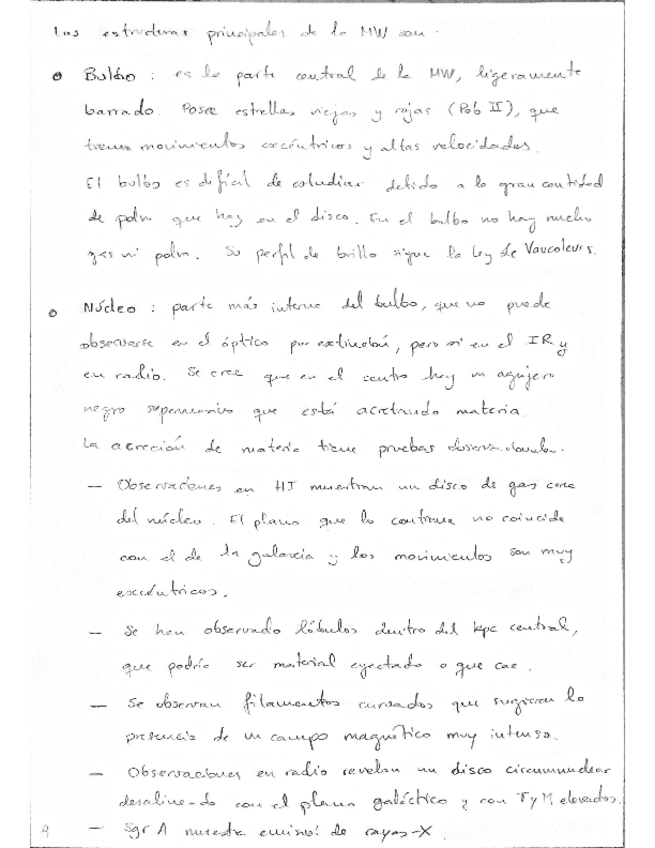 Las estructuras principales de la MW son:
• Bulbo : es la parte central de la MW, ligeramente
barrado. Posee estrellas viejas y rojas (Pob II), que
tienen movimientos excéntricos y altas velocidades.
El bulbo es difícil de estudiar debido a la gran cantidad
de polvo que hay en el disco. En el bulbo no hay mucho
gas ni polvo. Su perfil de brillo sigue la ley de Vaucoleurs.
• Núcleo : parte más interna del bulbo, que no puede
observarse en el óptico por extinción, pero sí en el IR y
en radio. Se cree que en el centro hay un agujero
negro supermasivo que está acretando materia.
La acreción de materia tiene pruebas observacionales.
— Observaciones en HI muestran un disco de gas cerca
del núcleo. El plano que lo contiene no coincide
con el de la galaxia y los movimientos son muy
excéntricos.
— Se han observado lóbulos dentro del kpc central,
que podría ser material eyectado o que cae.
— Se observan filamentos curvados que sugieren la
presencia de un campo magnético muy intenso.
— Observaciones en radio revelan un disco circumnuclear
desalineado con el plano galáctico y con T y M elevados.
— Sgr A muestra emisión de rayos-X.